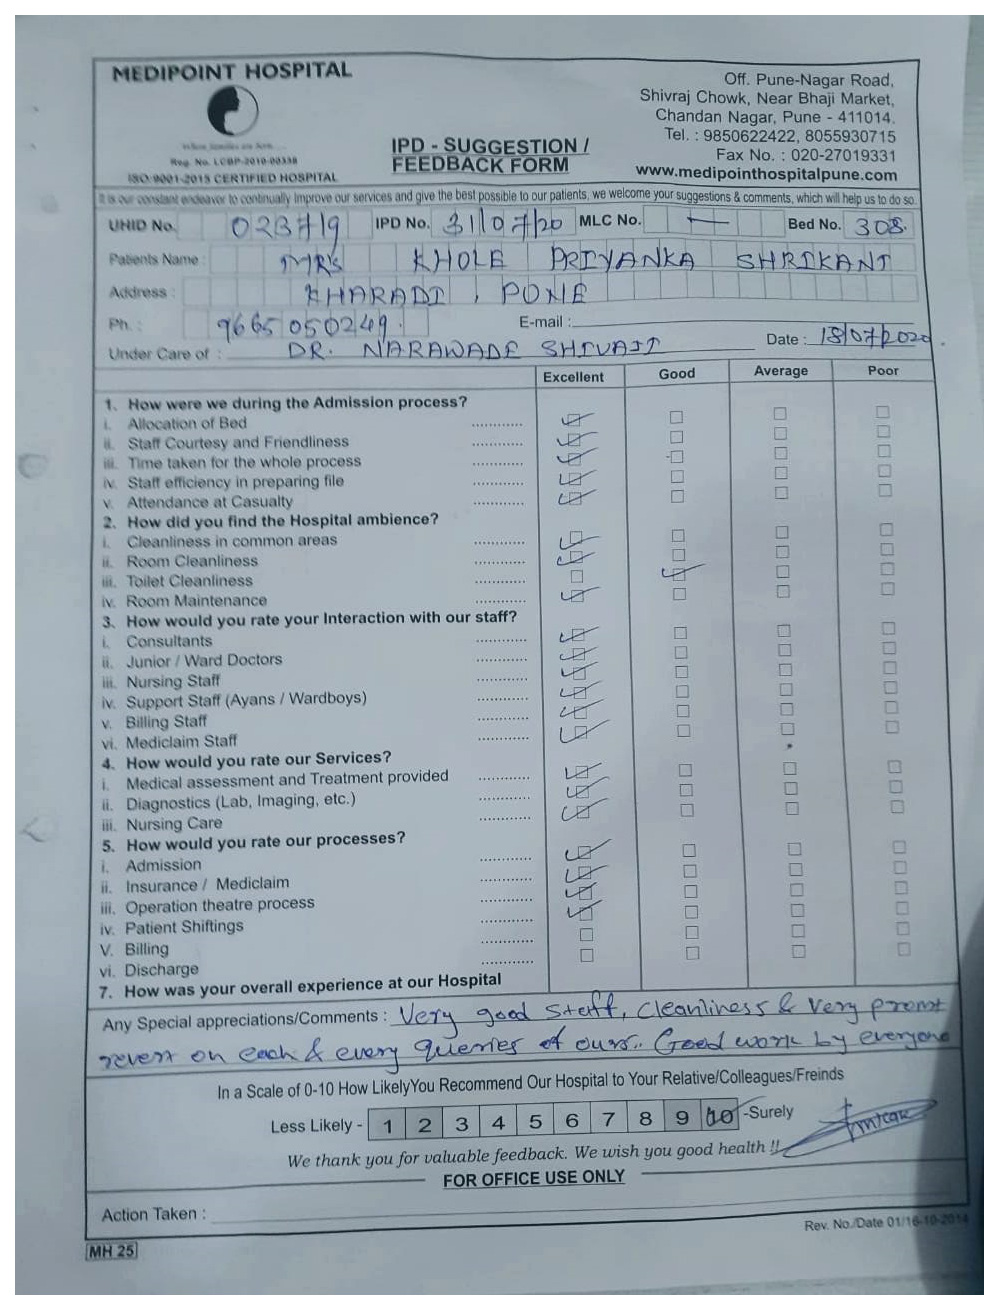 MEDIPOINT HOSPITAL
Off. Pune-Nagar Road,
Shivraj Chowk, Near Bhaji Market,
Chandan Nagar, Pune - 411014.
Tel. : 9850622422, 8055930715
Fax No. : 020-27019331
www.medipointhospitalpune.com
Reg. No. LCBP-2010-00338
ISO 9001-2015 CERTIFIED HOSPITAL
IPD - SUGGESTION /
FEEDBACK FORM
It is our constant endeavor to continually Improve our services and give the best possible to our patients, we welcome your suggestions & comments, which will help us to do so.
UHID No. 023719 IPD No. 31/07/20 MLC No. — Bed No. 308.
Patients Name : MRS KHOLE PRIYANKA SHRIKANT
Address : KHARADI, PUNE
Ph. : 9665050249. E-mail :
Under Care of : DR. NARAWADE SHIVAJI Date : 18/07/2020
Excellent Good Average Poor
1. How were we during the Admission process?
i. Allocation of Bed ............
ii. Staff Courtesy and Friendliness ............
iii. Time taken for the whole process ............
iv. Staff efficiency in preparing file ............
v. Attendance at Casualty ............
2. How did you find the Hospital ambience?
i. Cleanliness in common areas ............
ii. Room Cleanliness ............
iii. Toilet Cleanliness ............
iv. Room Maintenance ............
3. How would you rate your Interaction with our staff?
i. Consultants ............
ii. Junior / Ward Doctors ............
iii. Nursing Staff ............
iv. Support Staff (Ayans / Wardboys) ............
v. Billing Staff ............
vi. Mediclaim Staff ............
4. How would you rate our Services?
i. Medical assessment and Treatment provided ............
ii. Diagnostics (Lab, Imaging, etc.) ............
iii. Nursing Care ............
5. How would you rate our processes?
i. Admission ............
ii. Insurance / Mediclaim ............
iii. Operation theatre process ............
iv. Patient Shiftings ............
V. Billing ............
vi. Discharge ............
7. How was your overall experience at our Hospital
Any Special appreciations/Comments : Very good staff, cleanliness & very promt
revert on each & every queries of ours.. Good work by everyone
In a Scale of 0-10 How LikelyYou Recommend Our Hospital to Your Relative/Colleagues/Freinds
Less Likely - 1 2 3 4 5 6 7 8 9 10 -Surely
We thank you for valuable feedback. We wish you good health !!
FOR OFFICE USE ONLY
Action Taken :
Rev. No./Date 01/16-10-2014
MH 25